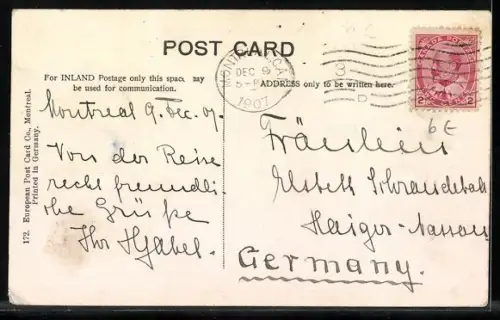 POST CARD
For INLAND Postage only this space may
be used for communication.
ADDRESS only to be written here.
MONTREAL CA
DEC 9
1907
CANADA POSTAGE
2 2
6 E
Montreal 9. Dec. 07.
Von der Reise
recht freundli-
che Grüße
Ihr
Fräulein
Elsbeth
Haiger-Nassau
Germany.
172. European Post Card Co., Montreal.
Printed in Germany.